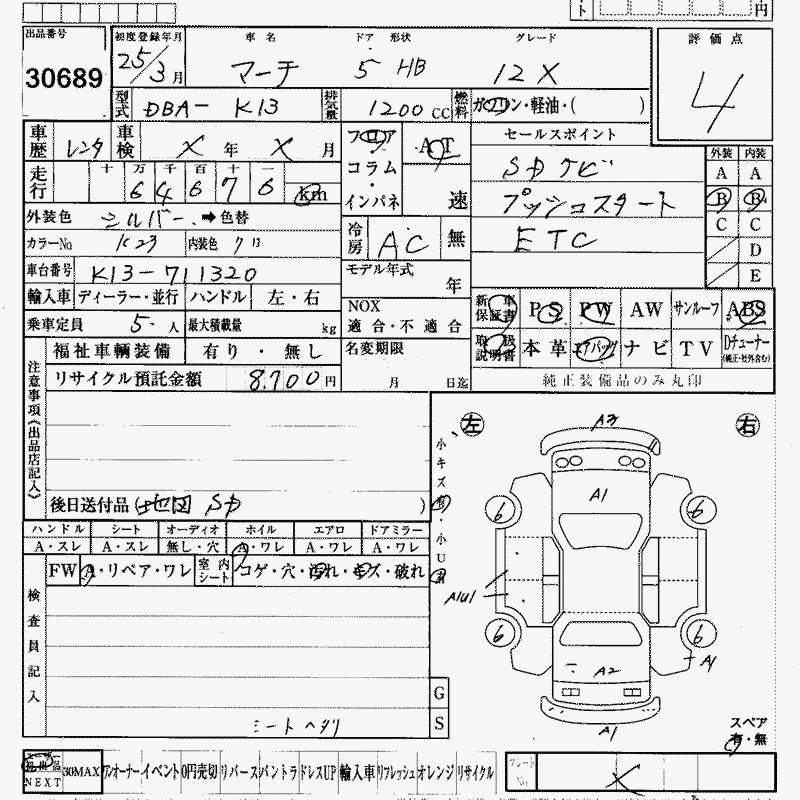 ト 円
出品番号 初度登録年月 車名 ドア 形状 グレード 評価点
30689 25/3月 マーチ 5 HB 12X 4
型式 DBA- K13 排気量 1200 CC 燃料 ガソリン・軽油・( )
車歴 レンタ 車検 X 年 X 月 フロア AT セールスポイント 外装 内装
走行 十 万 千 百 十 一 コラム・インパネ 速 SDナビ A A
6 4 6 7 6 km プッシュスタート B B
外装色 シルバー ➡ 色替 冷房 AC 無 ETC C C
カラーNo K23 内装色 D
車台番号 K13-711320 モデル年式 年 E
輸入車 ディーラー・並行 ハンドル 左・右 NOX 適合・不適合 新車保証書 PS PW AW サンルーフ ABS
乗車定員 5 人 最大積載量 kg 取扱説明書 本革 エアバッグ ナビ TV Dチューナー (純正・社外含む)
福祉車輌装備 有り・無し 名変期限 純正装備品のみ丸印
リサイクル預託金額 8,700円 月 日迄
注意事項(出品店記入)
後日送付品 (地図 SD )
ハンドル シート オーディオ ホイル エアロ ドアミラー
A・スレ A・スレ 無し・穴 A・ワレ A・ワレ A・ワレ
FW A・リペア・ワレ 室内シート コゲ・穴・汚れ・キズ・破れ
検査員記入
シートヘタリ
小キズ・小U
左 右
A3
A1
6 6
A1U1
6 6
A2 A1
A1
G
S
スペア
有・無
NEXT 30MAX アンオーナー イベント 0円売切 リバース バントラ ドレスUP 輸入車 リフレッシュ オレンジ リサイクル X